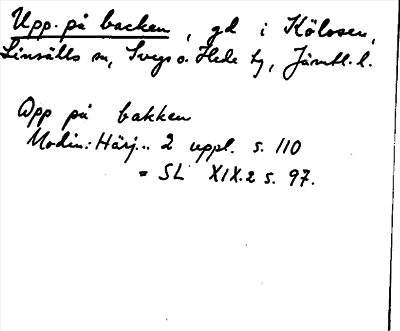 Upp. på backen, gd i Kölosen,
Linsälls sn, Svegs o. Hede tg, Jämtl. l.
Opp på bakken
Modin: Härj... 2 uppl. s. 110
= SL XIX.2 s. 97.